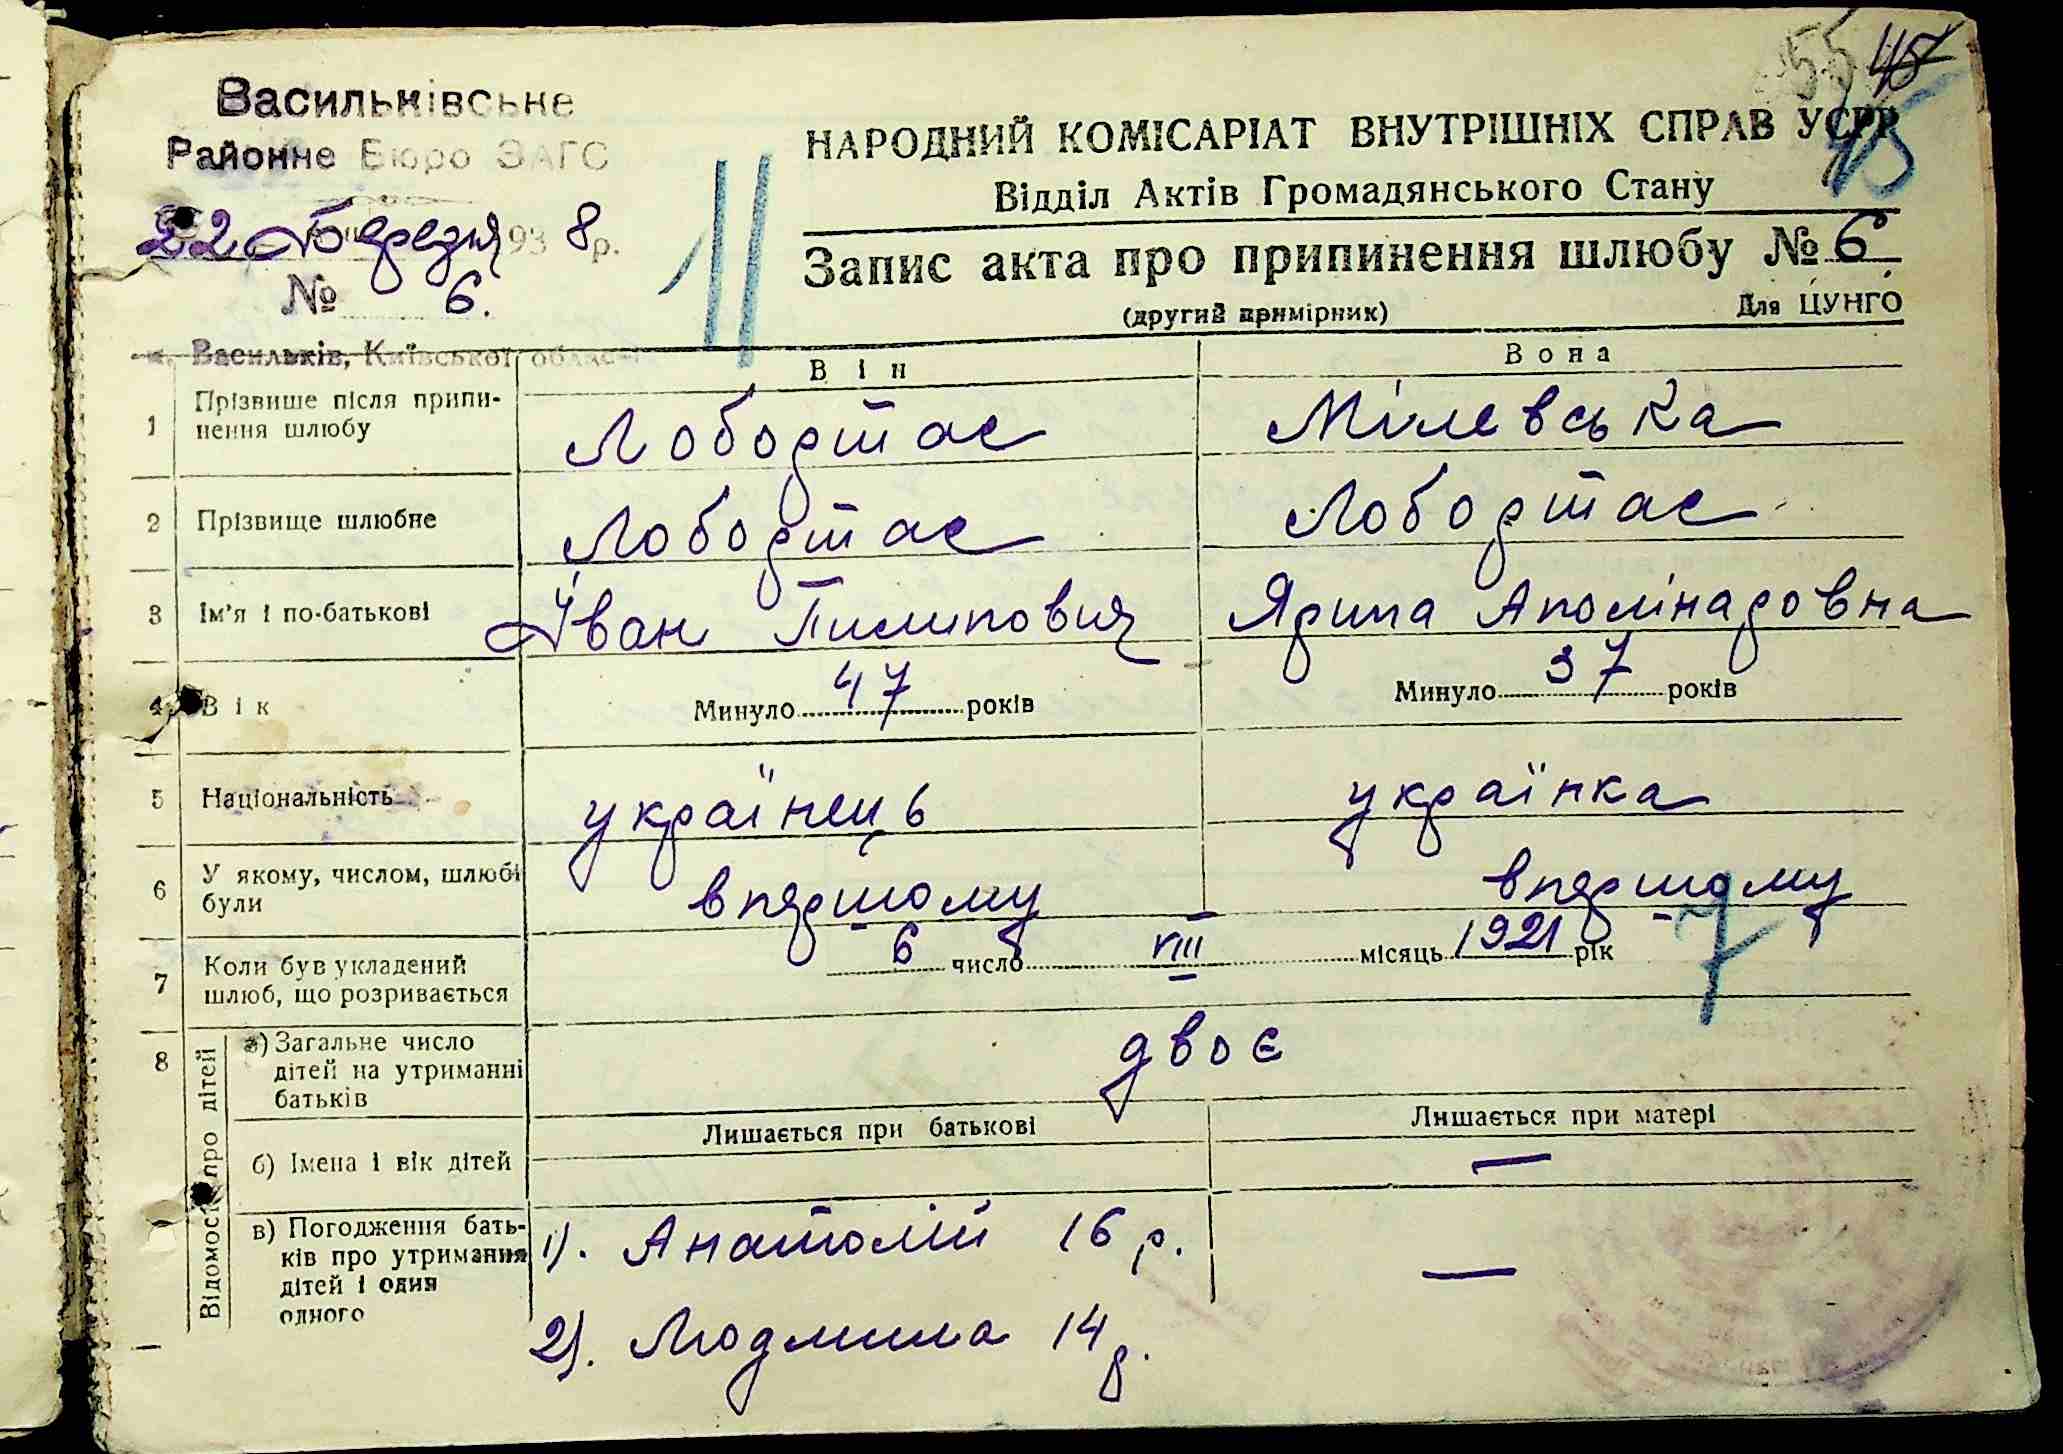 55 45
45
Васильківське
Районне Бюро ЗАГС
22 березня 1938 р.
№ 6.
м. Васильків, Київської област
11
НАРОДНИЙ КОМІСАРІАТ ВНУТРІШНІХ СПРАВ УСРР
Відділ Актів Громадянського Стану
Запис акта про припинення шлюбу № 6
(другий примірник) Для ЦУНГО
Він Вона
1 Прізвише після припи-
нення шлюбу Лободтас Мілевська
2 Прізвище шлюбне Лободтас Лободтас
3 Ім'я і по-батькові Іван Пилипович Ярина Аполінаровна
4 Вік Минуло 47 років Минуло 37 років
5 Національність українець українка
6 У якому, числом, шлюбі
були впершому впершому
7
7 Коли був укладений
шлюб, що розривається 6 число VIII місяць 1921 рік
8 Відомості про дітей
а) Загальне число
дітей на утриманні
батьків двоє
Лишається при батькові Лишається при матері
б) Імена і вік дітей —
в) Погодження бать-
ків про утримання
дітей і один
одного
1). Анатолій 16 р. —
2). Людмила 14 р.